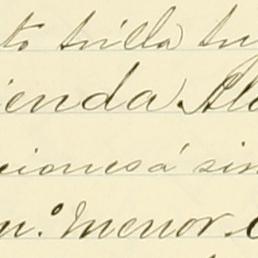 to trilla tu
ienda. Alo
cionesá sin
n.º Menor